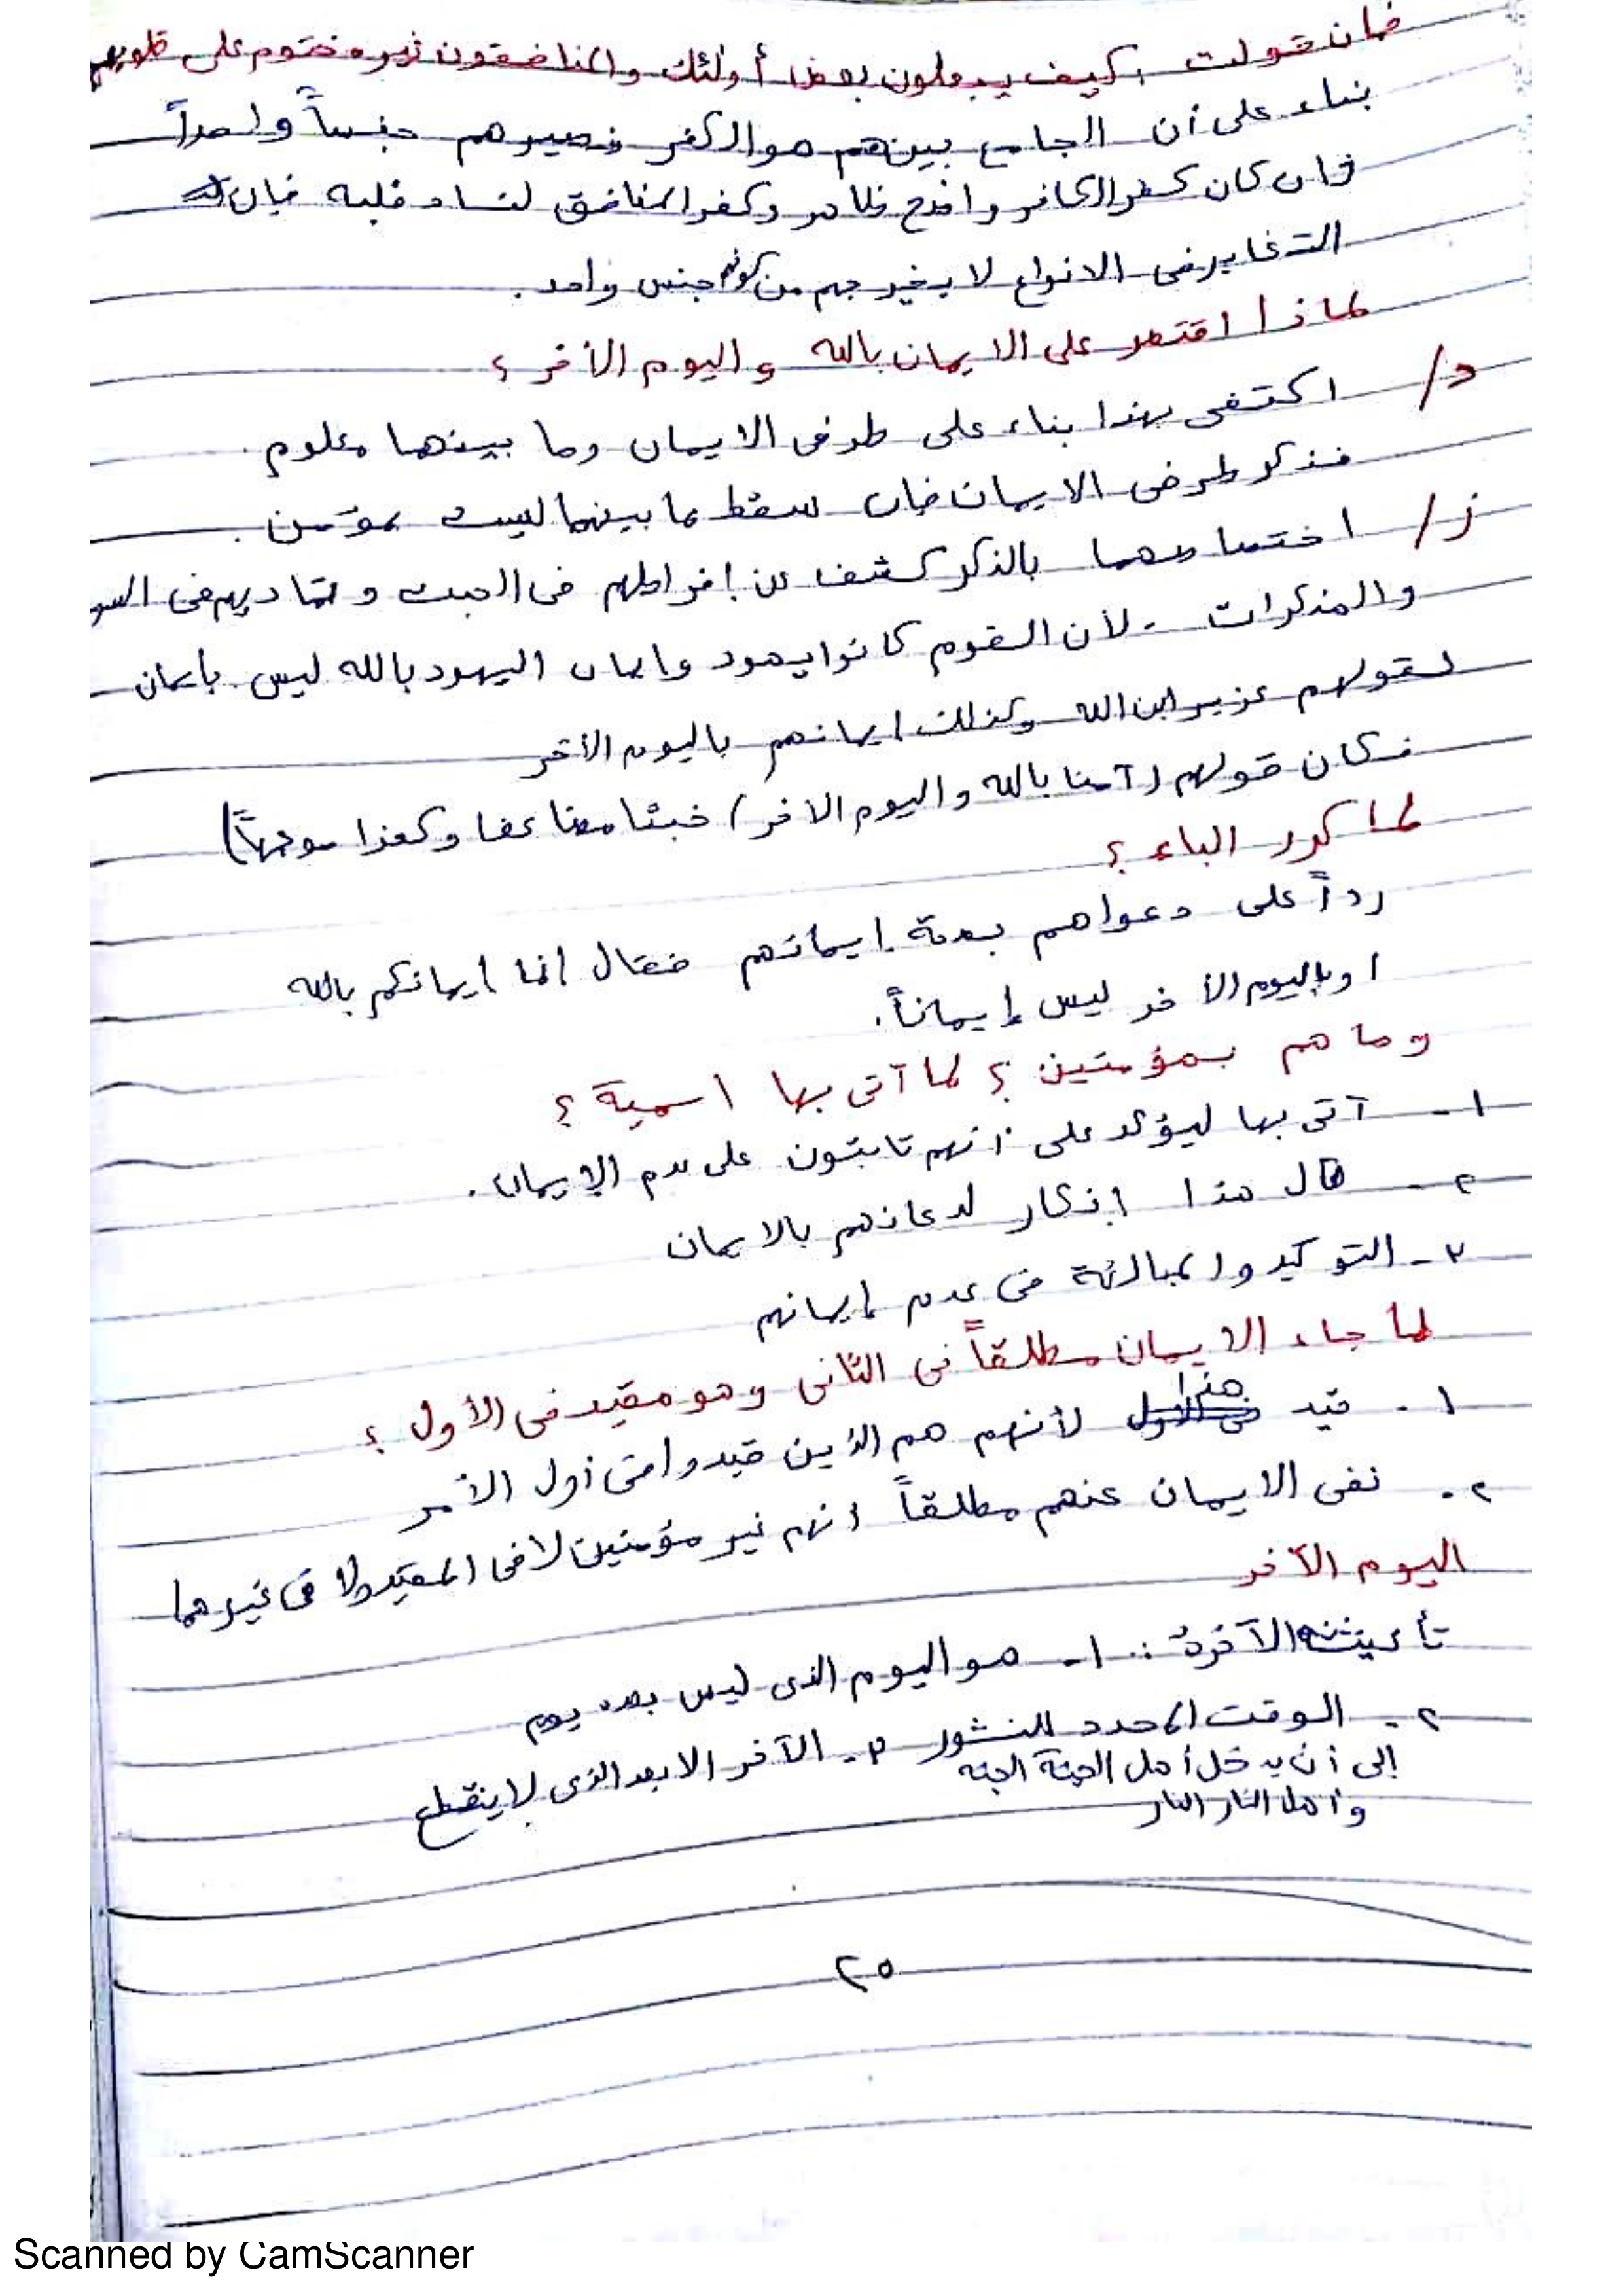 فان قولت ، كيف يجعلون بعض أولئك والمنافقون غير مختوم على قلوبهم
بناء على أن الجامع بينهم هو الكفر فصيرهم جنساً واحداً
فان كان كفر الكافر واضح ظاهر وكفر المنافق لفساد قلبه فإن
التغاير فى الانواع لا يخرجهم من كونهم جنس واحد .
لماذا اقتصر على الايمان بالله واليوم الأخر ؟
د/ اكتفى بهذا بناء على طرفى الايمان وما بينهما معلوم .
فذكر طرفى الايمان فإن سقط ما بينهما ليست بمؤمن .
ز/ اختصاصهما بالذكر كشف عن إفراطهم فى الخبث وتماديهم فى السو
والمنكرات . لأن القوم كانوا يهود وايمان اليهود بالله ليس بأيمان
لقولهم عزير ابن الله وكذلك ايمانهم باليوم الأخر
فكان قولهم (آمنا بالله واليوم الاخر) خبثا مضاعفا وكفرا موجهاً)
لما كرر الباء ؟
رداً على دعواهم بصحة إيمانهم فقال انما ايمانكم بالله
او باليوم الأخر ليس إيماناً.
وما هم بمؤمنين ؟ لما آتى بها اسمية ؟
١- آتى بها ليؤكد على أنهم ثابتون على عدم الإيمان .
٢- قال هذا إنكار لدعائهم بالايمان
٣- التوكيد والمبالغة فى عدم إيمانهم
لما جاء الايمان مطلقاً فى الثانى وهو مقيد فى الأول ؟
١. قيد هنا لأنهم هم الذين قيدوا فى أول الأمر
٢. نفى الايمان عنهم مطلقاً انهم غير مؤمنين لا فى المقيد ولا فى غيرهما
اليوم الآخر
تأنيثه الآخرة : ١- هو اليوم الذى ليس بعده يوم
٢. الوقت المحدد للنشور ٣. الآخر الابعد الذى لا ينقطع
إلى أن يدخل أهل الجنة الجنه
وأهل النار النار
٢٥
Scanned by CamScanner